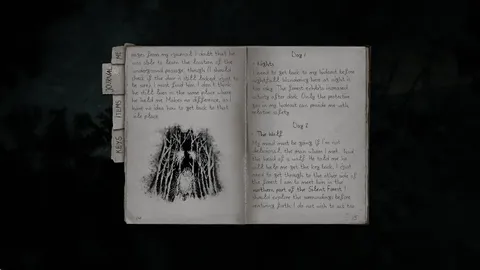 ME
JOURNAL
ITEMS
KEYS
notes from my journal. I doubt that he
was able to learn the location of the
underground passage, though I should
check if the door is still locked. I got to
be sure. I must find him. I don't think
he still lives in the same place where
he held me. Makes no difference, as I
have no idea how to get back to that
vile place.
Day 1
• Nights
I need to get back to my hideout before
nightfall. Wandering here at night is
too risky. The forest exhibits increased
activity after dark. Only the protective
gas in my hideout can provide me with
relative safety.
Day 2
• The Wolf
My mind must be going. If I'm not
delusional, the man whom I met, had
the head of a wolf. He told me he
will help me get the key back. I just
have to get through to the other side of
the forest. I am to meet him in the
northern part of the Silent Forest. I
should explore the surroundings before
venturing forth. I do not wish to fall too